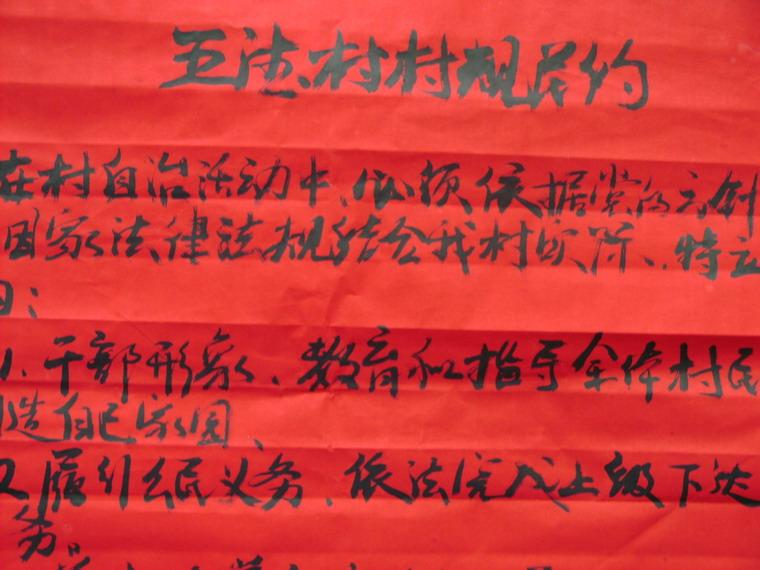 五法村村规民约
在村自治活动中、必须依据党的方针
国家法律法规结合我村实际、特立
日:
、干部形象、教育和指导全体村民
造自己家园、
2履行公民义务、依法完成上级下达
务。